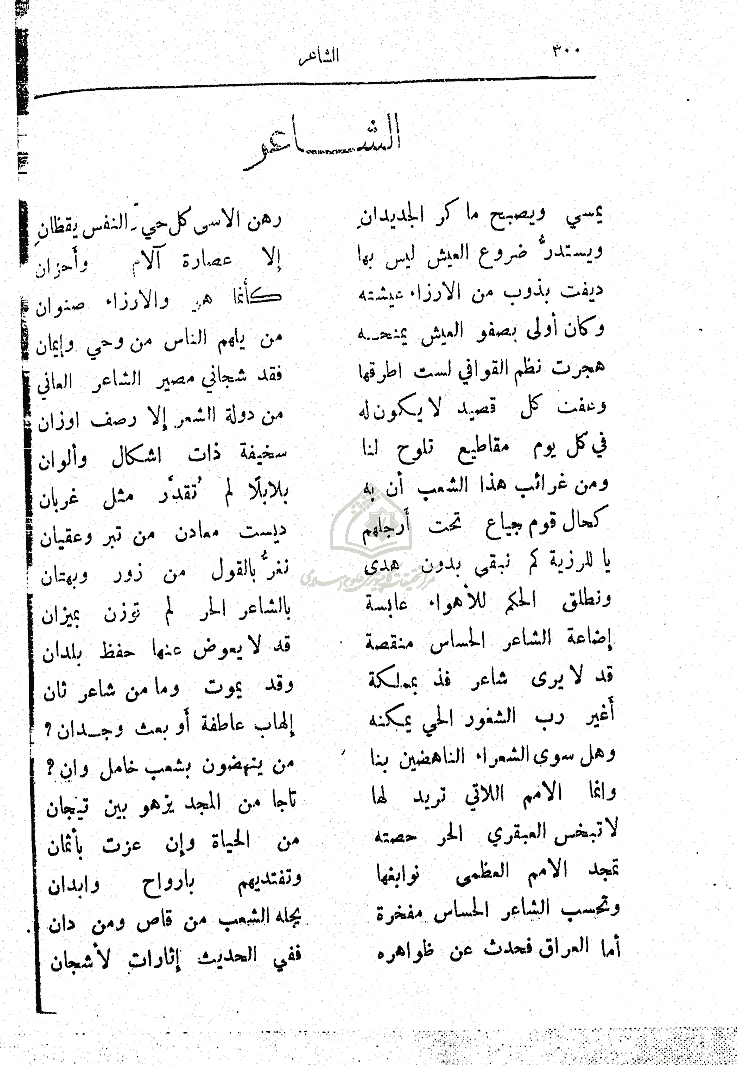 ٣٠٠ الشاعر
الشاعر
يمسي ويصبح ما كر الجديدانِ رهن الاسى كل حيّ النفس يقظانِ
ويستدرُّ ضروع العيش ليس بها إلا عصارة آلام وأحزان
ديفت بذوب من الارزاء عيشته كأنما هي والارزاء صنوان
وكان أولى بصفو العيش يمنحه من يلهم الناس من وحي وإيمان
هجرت نظم القوافي لست اطرقها فقد شجاني مصير الشاعر العاني
وعفت كل قصيد لا يكون له من دولة الشعر إلا رصف اوزان
في كل يوم مقاطيع تلوح لنا سخيفة ذات اشكال وألوان
ومن غرائب هذا الشعب أن به بلابلًا لم تُقدَّر مثل غربان
كحال قوم جياع تحت أرجلهم ديست معادن من تبر وعقيان
يا للرزية كم نبقى بدون هدى نغرُّ بالقول من زور وبهتان
ونطلق الحكم للأهواء عابسة بالشاعر الحر لم توزن بميزان
إضاعة الشاعر الحساس منقصة قد لا يعوض عنها حفظ بلدان
قد لا يرى شاعر فذ بمملكة وقد يموت وما من شاعر ثان
أغير رب الشعور الحي يمكنه إلهاب عاطفة أو بعث وجدان؟
وهل سوى الشعراء الناهضين بنا من ينهضون بشعب خامل وان؟
وانما الامم اللاتي تريد لها تاجا من المجد يزهو بين تيجان
لا تبخس العبقري الحر حصته من الحياة وإن عزت بأثمان
تمجد الامم العظمى نوابغها وتفتديهم بارواح وابدان
وتحسب الشاعر الحساس مفخرة يجله الشعب من قاص ومن دان
أما العراق فحدث عن ظواهره ففي الحديث إثارات لأشجان